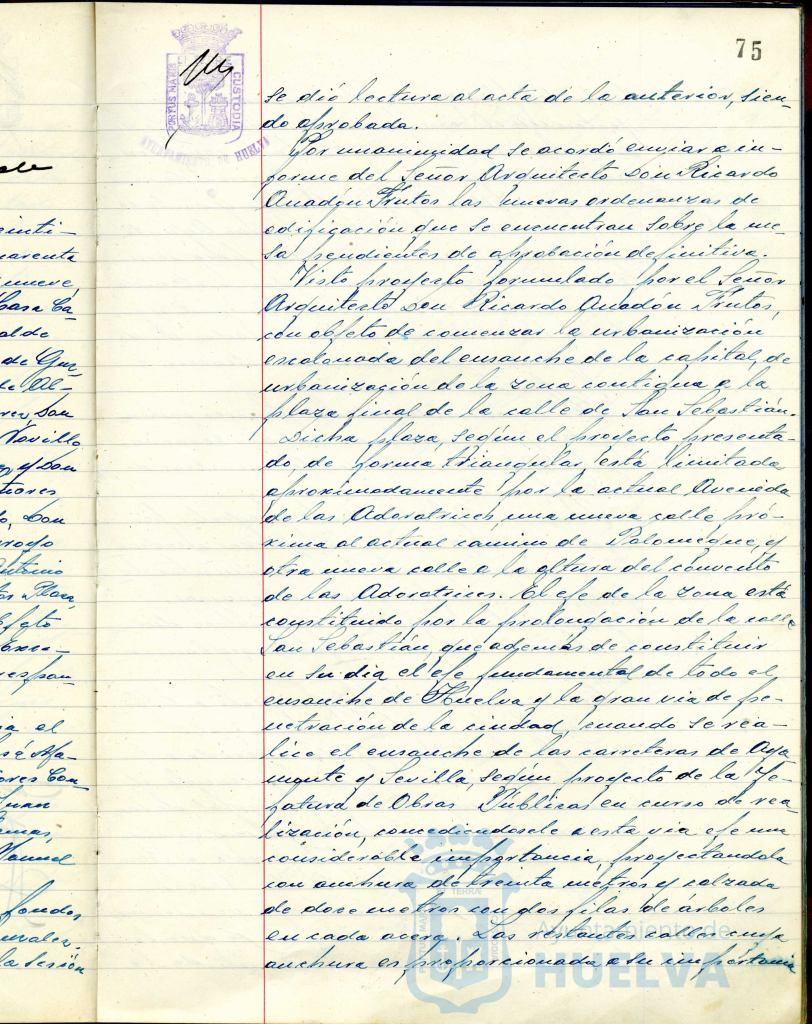 75
PORTUS MARIS
CUSTODIA
AYUNTAMIENTO DE HUELVA
se dió lectura al acta de la anterior, sien-
do aprobada.
Por unanimidad se acordó enviar a in-
forme del Señor Arquitecto Don Ricardo
Anadón Frutos las nuevas ordenanzas de
edificación que se encuentran sobre la me-
sa pendientes de aprobación definitiva.
Visto proyecto formulado por el Señor
Arquitecto Don Ricardo Anadón Frutos,
con objeto de comenzar la urbanización
escalonada del ensanche de la capital, de
urbanización de la zona contigua a la
plaza final de la calle de San Sebastián.
Dicha plaza, según el proyecto presenta-
do, de forma triangular, está limitada
aproximadamente por la actual Avenida
de las Adoratrices, una nueva calle pró-
xima al actual camino de Palomeque, y
otra nueva calle a la altura del convento
de las Adoratrices. El eje de la zona está
constituido por la prolongación de la calle
San Sebastián, que además de constituir
en su dia el eje fundamental de todo el
ensanche de Huelva y la gran via de pe-
netración de la ciudad, cuando se rea-
lice el ensanche de las carreteras de Aya
monte y Sevilla, según proyecto de la Je-
fatura de Obras Públicas en curso de rea-
lización, concediendosele a esta via eje una
considerable importancia, proyectandola
con anchura de treinta metros y calzada
de doce metros con dos filas de árboles
en cada acera. Las restantes calles cuya
anchura es proporcionada a su importancia
Ayuntamiento de
HUELVA
einti-
uarenta
nueve,
Casa Ca-
alde
de Guz-
de Al-
Don
y Don
Don
Antonio
Plaza,
a el
Juan
Manuel
fondos
la Sesión